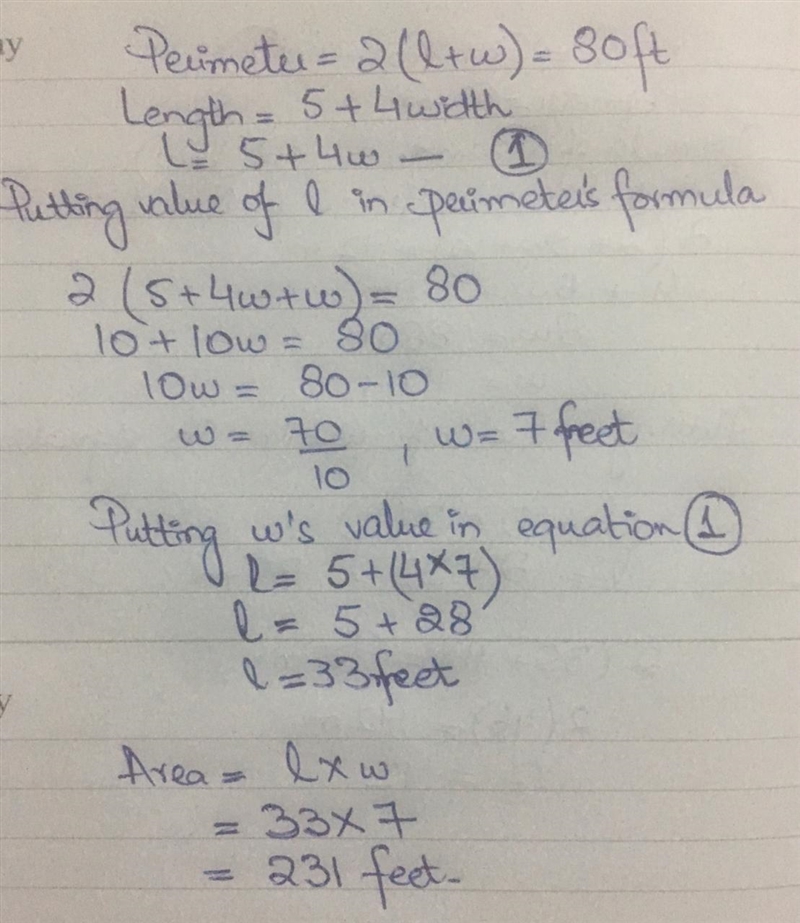 ay
Perimeter = 2(l+w) = 80ft
Length = 5 + 4width
l = 5 + 4w — ①
Putting value of l in perimeter's formula
2 (5+4w+w) = 80
10 + 10w = 80
10w = 80-10
w = 70/10 , w = 7 feet
Putting w's value in equation ①
l = 5+(4×7)
l = 5 + 28
l = 33 feet
y
Area = l × w
= 33 × 7
= 231 feet.